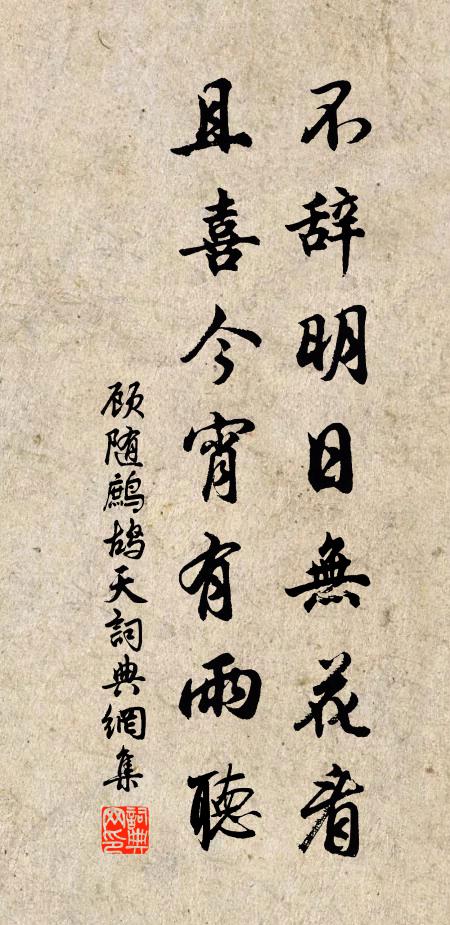 不辞明日無花看
且喜今宵有雨聽
顾随鷓鴣天詞典網集
詞典網印